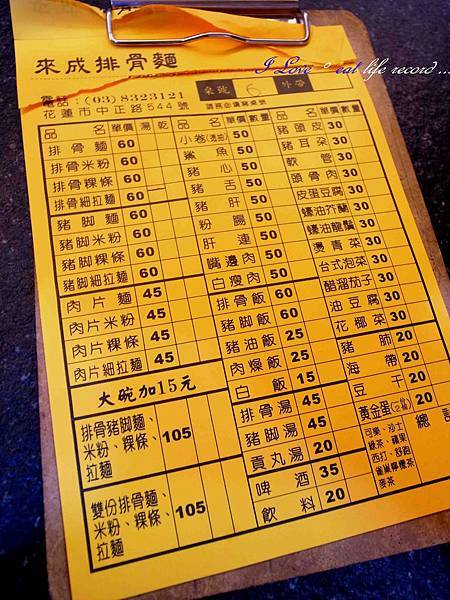 來成排骨麵
I Love ° eat life record ...
電話:(03)8323121
花蓮市中正路544號
桌號 6 外帶
請務必填寫桌號
品名 單價 湯 乾
排骨麵 60
排骨米粉 60
排骨粿條 60
排骨細拉麵 60
豬脚麵 60
豬脚米粉 60
豬脚粿條 60
豬脚細拉麵 60
肉片麵 45
肉片米粉 45
肉片粿條 45
肉片細拉麵 45
大碗加15元
排骨豬脚麵、米粉、粿條、拉麵 105
雙份排骨麵、米粉、粿條、拉麵 105
品名 單價 數量
小卷(透抽) 50
鯊魚 50
豬心 50
豬舌 50
豬肝 50
粉腸 50
肝連 50
嘴邊肉 50
白瘦肉 50
排骨飯 60
豬脚飯 60
豬油飯 25
肉燥飯 25
白飯 15
排骨湯 45
豬脚湯 45
貢丸湯 20
啤酒 35
飲料 20
品名 單價 數量
豬頭皮 30
豬耳朶 30
軟管 30
頭骨肉 30
皮蛋豆腐 30
蠔油芥蘭 30
蠔油龍鬚 30
燙青菜 30
台式泡菜 30
醋溜茄子 30
油豆腐 30
花椰菜 30
豬肺 20
海帶 20
豆干 20
黃金蛋 20
總計
可樂、沙士
綠茶、蘋果
西打、舒跑
雀巢檸檬茶
麥茶